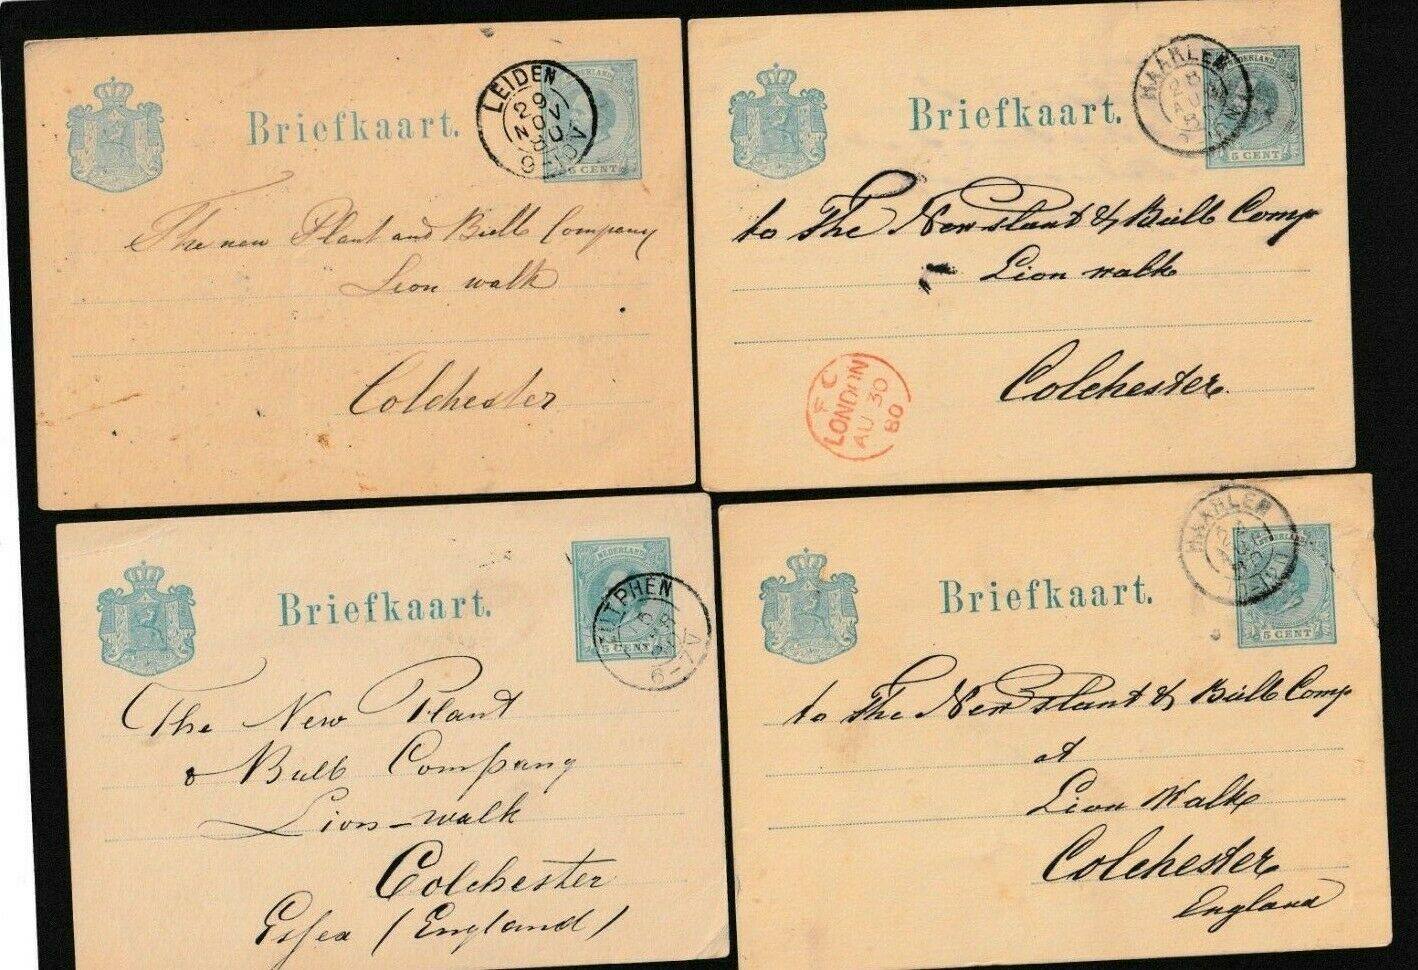 Briefkaart.
NEDERLAND
5 CENT
LEIDEN
29
NOV
80
9-10V
The new Plant and Bulb Company
Lion walk
Colchester
Briefkaart.
NEDERLAND
5 CENT
HAARLEM
28
AUG
80
to The New Plant & Bulb Comp
Lion walk
Colchester.
F C
LONDON
AU 30
80
Briefkaart.
NEDERLAND
5 CENT
ZUTPHEN
6-7V
The New Plant
& Bulb Company
Lion-walk
Colchester
Essex (England)
Briefkaart.
NEDERLAND
5 CENT
HAARLEM
to The New Plant & Bulb Comp
at
Lion Walk
Colchester
England